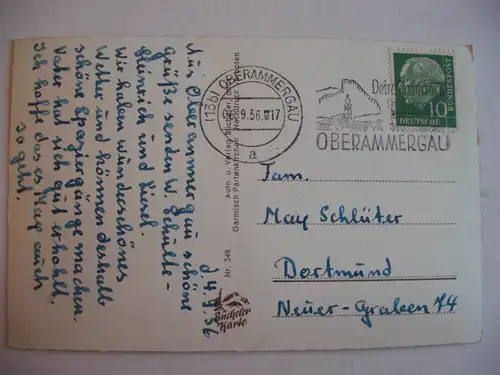 d 4.9.56
Aus Oberammergau schöne
Grüße senden W. Schulte -
Heinrich und Liesel.
Wir haben wunderschönes
Wetter und können deshalb
schöne Spaziergänge machen.
Vater hat sich gut erholt,
Ich hoffe das es May auch
so geht.
Aufn. u. Verlag
Garmisch-Partenkirchen
Nr. 348
Bücheler
Karte
(13b) OBERAMMERGAU
9.56.-17
a
OBERAMMERGAU
10
DEUTSCHE
BUNDESPOST
Fam.
May Schlüter
Dortmund
Neuer-Graben 74